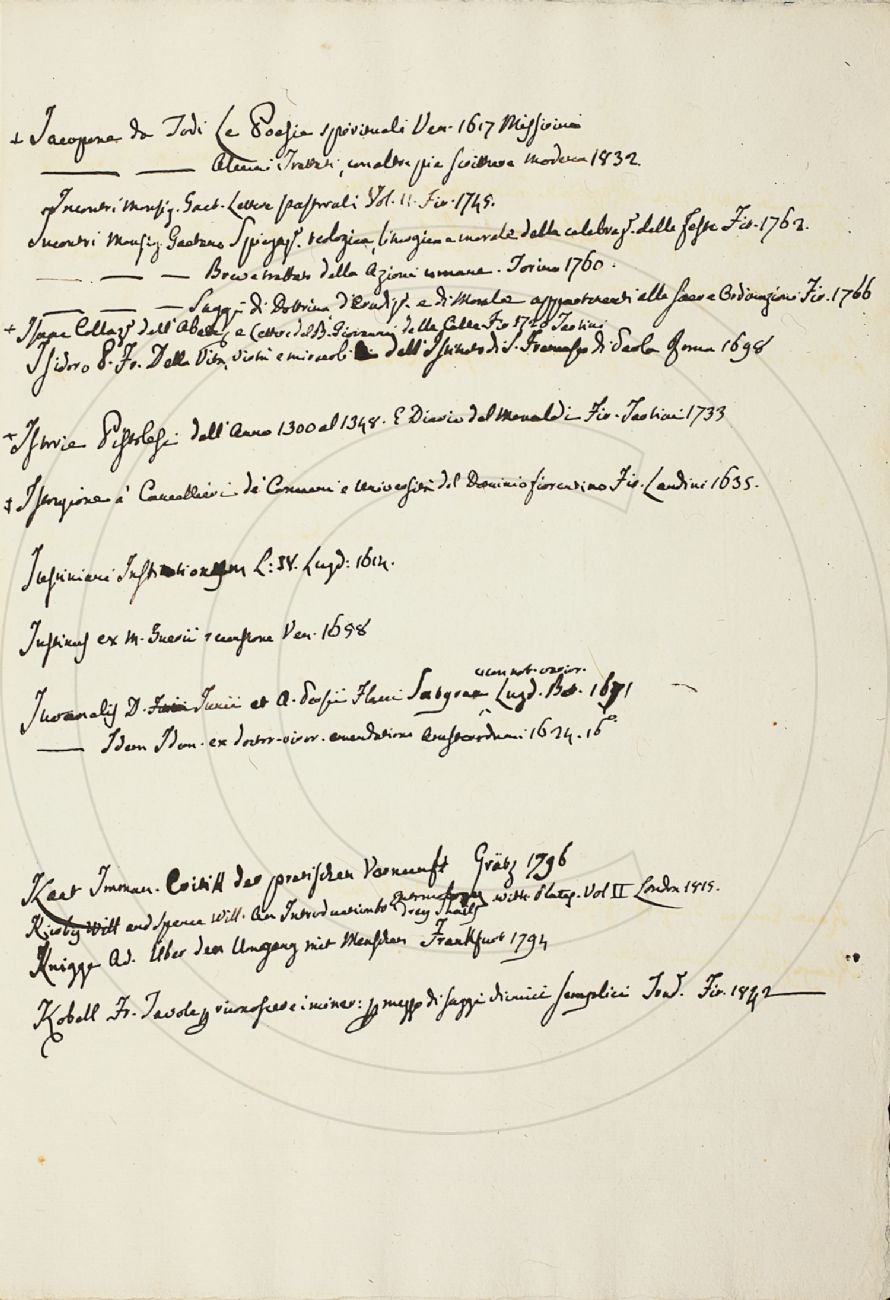 + Jacopone da Todi Le Poesie spirituali Ven. 1617 Misserini
—— —— Alcuni Trattati, con altre pie scritture Modena 1832
Incontri Monsig. Gaet. Lettere pastorali Vol. II Fir. 1745.
Incontri Monsig. Gaetano Spiegaz. teologica, liturgica e morale della celebraz. delle feste Fir. 1762.
—— —— —— Breve trattato delle Azioni umane. Torino 1760.
—— —— —— Saggi di Dottrina, d'Erudiz. e di Morale appartenenti alle sacre Ordinazioni Fir. 1766
+ Isaac Collaz. dell'Abate, e Lettere del B. Giovanni delle Celle Fir. 1720 Tartini
Isidoro P. Fr. Della Vita, virtù e miracoli dell'Istituto di S. Francesco di Paola Roma 1698
+ Istorie Pistolesi dall'Anno 1300 al 1348. E Diario del Monaldi Fir. Tartini 1733
‡ Istruzione a' Cancellieri de' Comuni e Università del Dominio fiorentino Fir. Landini 1635.
Justiniani Institutionum L: IV. Lugd: 1614.
Justinus ex M. recensione Ven. 1698
Juvenalis D. Junii et A. Persii Flacci Satyrae cum not. varior. Lugd. Bat. 1671
—— Idem Idem. ex doctor. viror. emendatione Amsterdami 1624. 16°
Kant Imman. Critik der pratischen Vernunft Grätz 1796
Kirby Will and Spence Will. An Introduction to Entomology with Plates. Vol II London 1818.
Knigge Ad. Über den Umgang mit Menschen Frankfurt 1794
Kobell Fr. Tavole p riconoscere i miner: p mezzo di saggi chimici semplici Trad. Fir. 1842